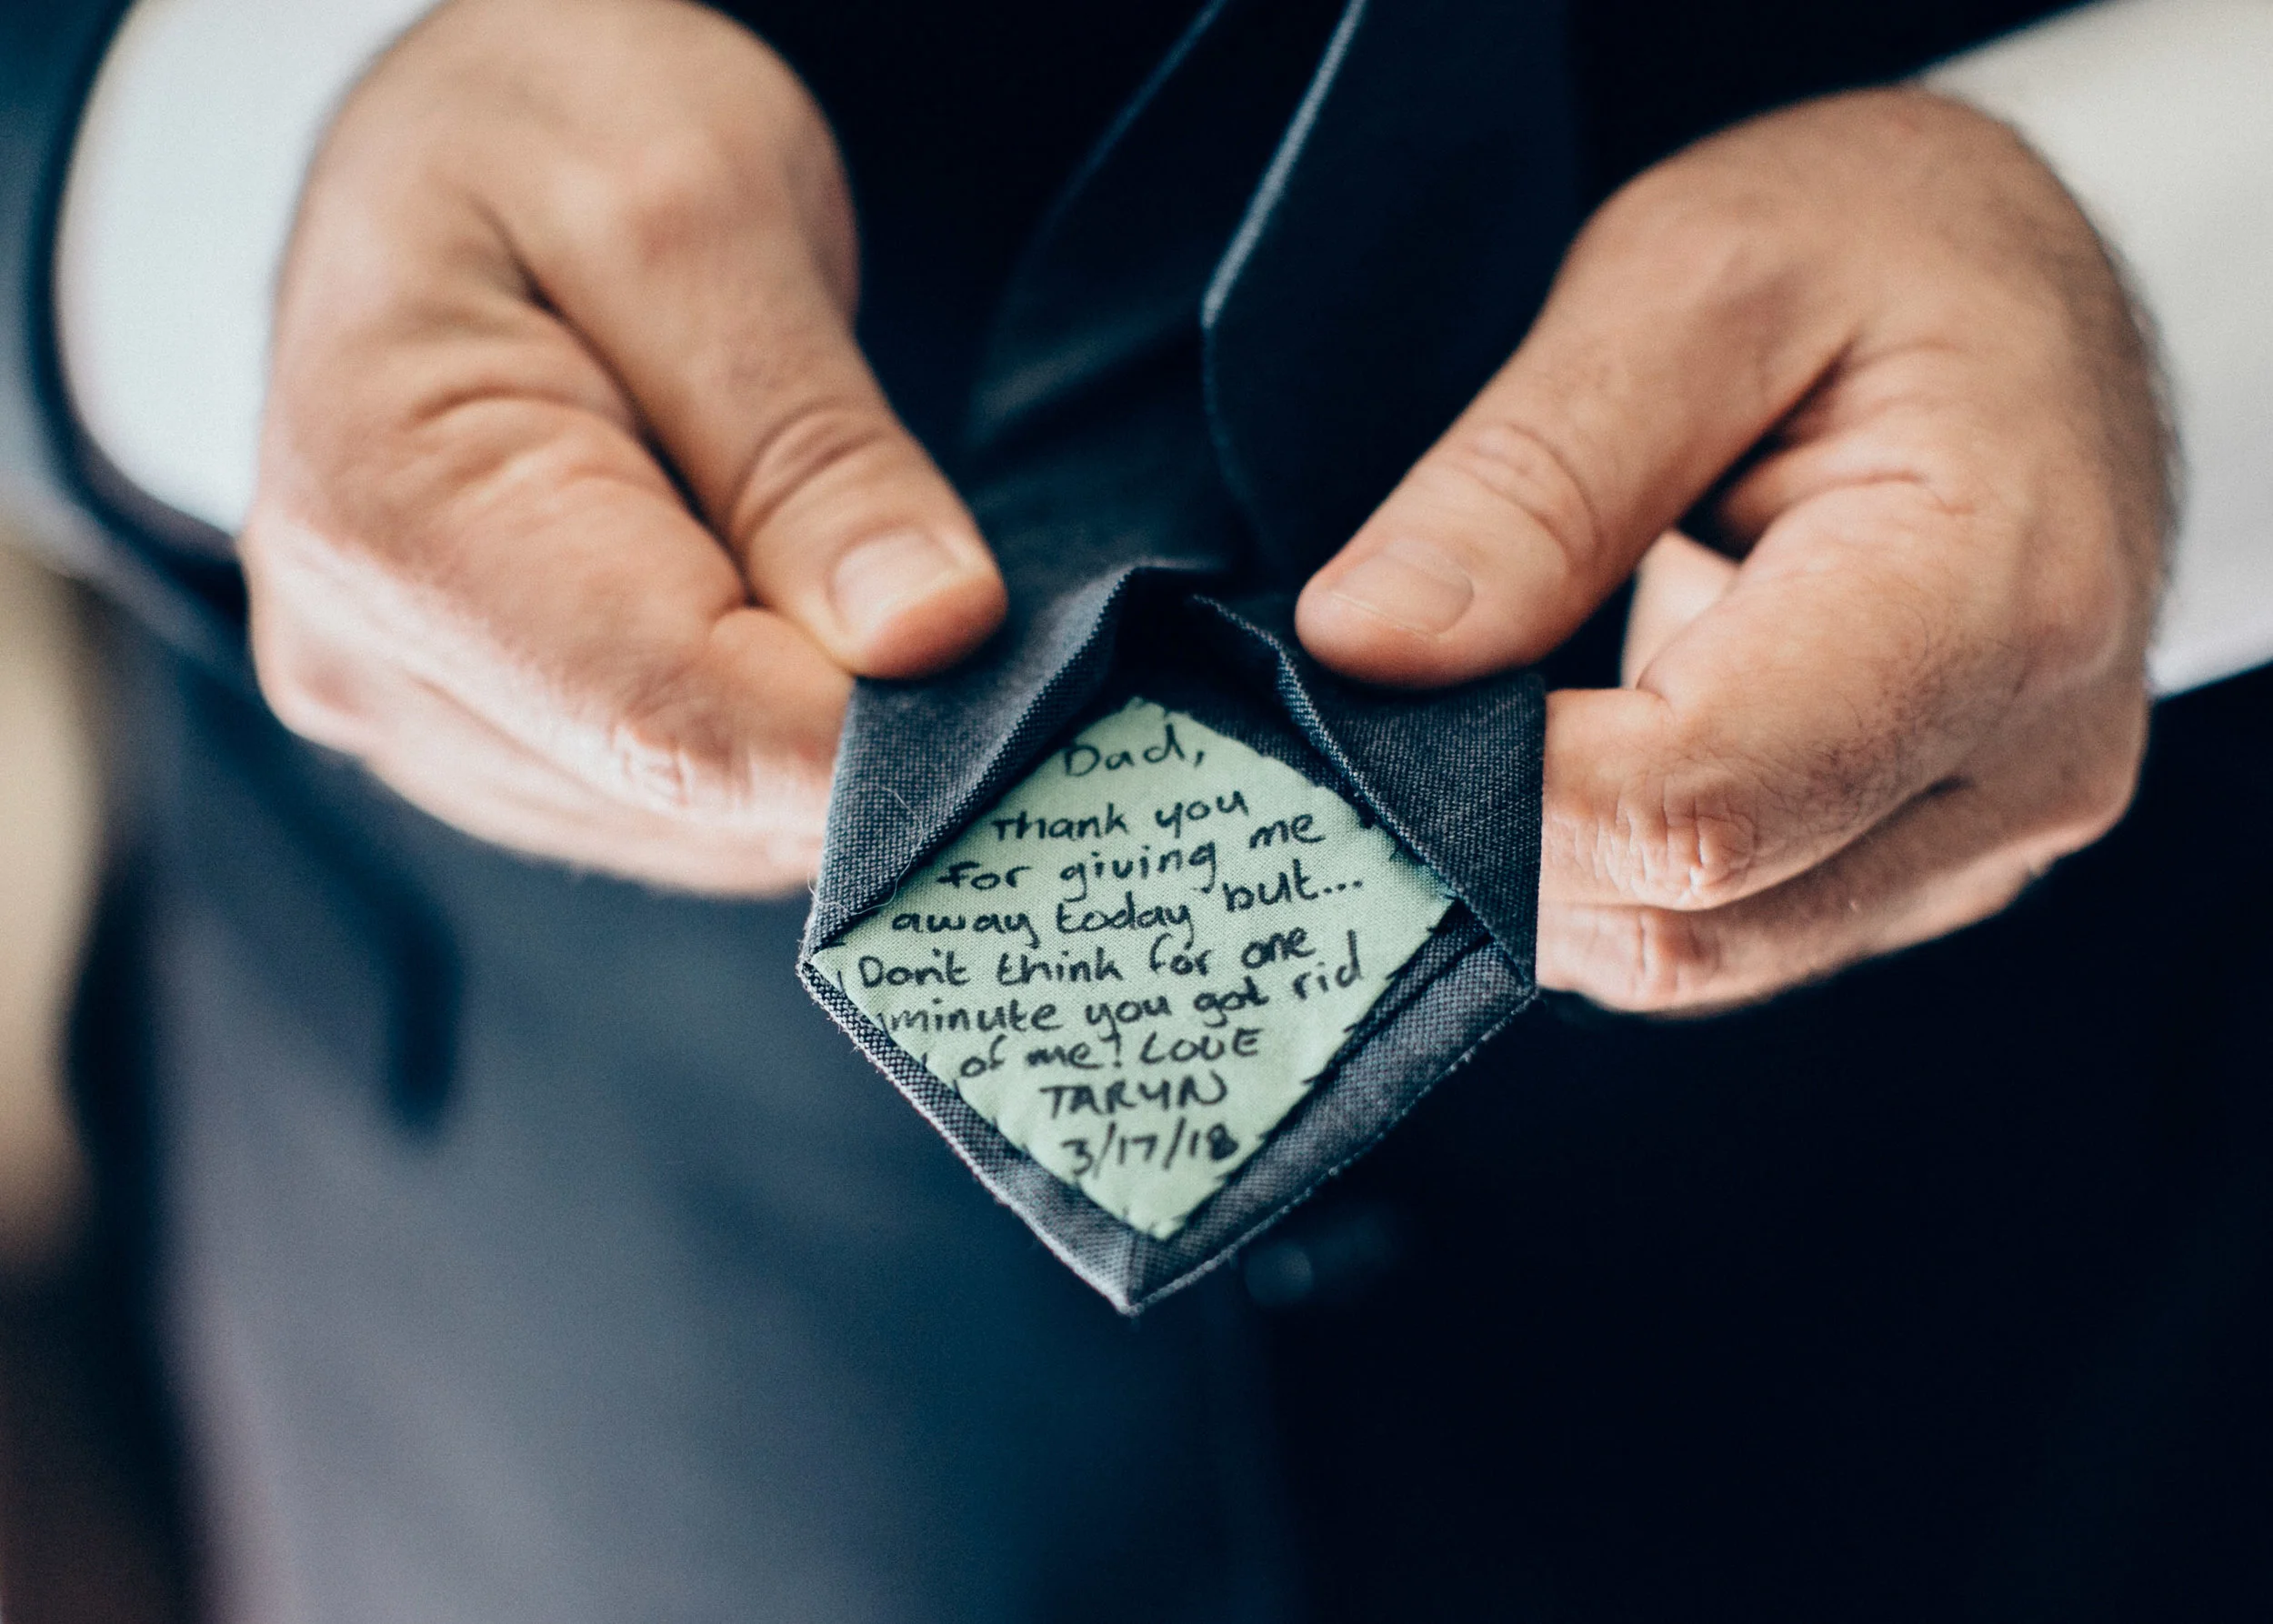 Dad,
Thank you
for giving me
away today but...
Don't think for one
minute you got rid
of me! LOVE
TARYN
3/17/18